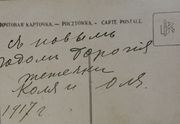 ПОЧТОВАЯ КАРТОЧКА. — POCZTÓWKA. — CARTE POSTALE.
съ новымъ
годомъ дорогія
тетечки
Коля и Оля
1917 г.